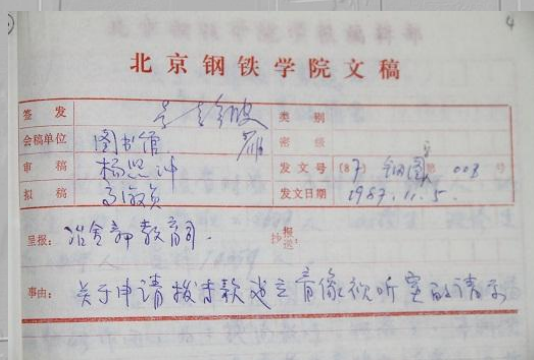 4
北京钢铁学院文稿
签发 类别
会稿单位 图书馆 密级
审稿 杨思冲 发文号 (87) 钢图 003 号
拟稿 高淑贞 发文日期 1987.11.5.
呈报: 冶金部教育司. 抄报送:
事由: 关于申请拨专款建立音像视听室的请示